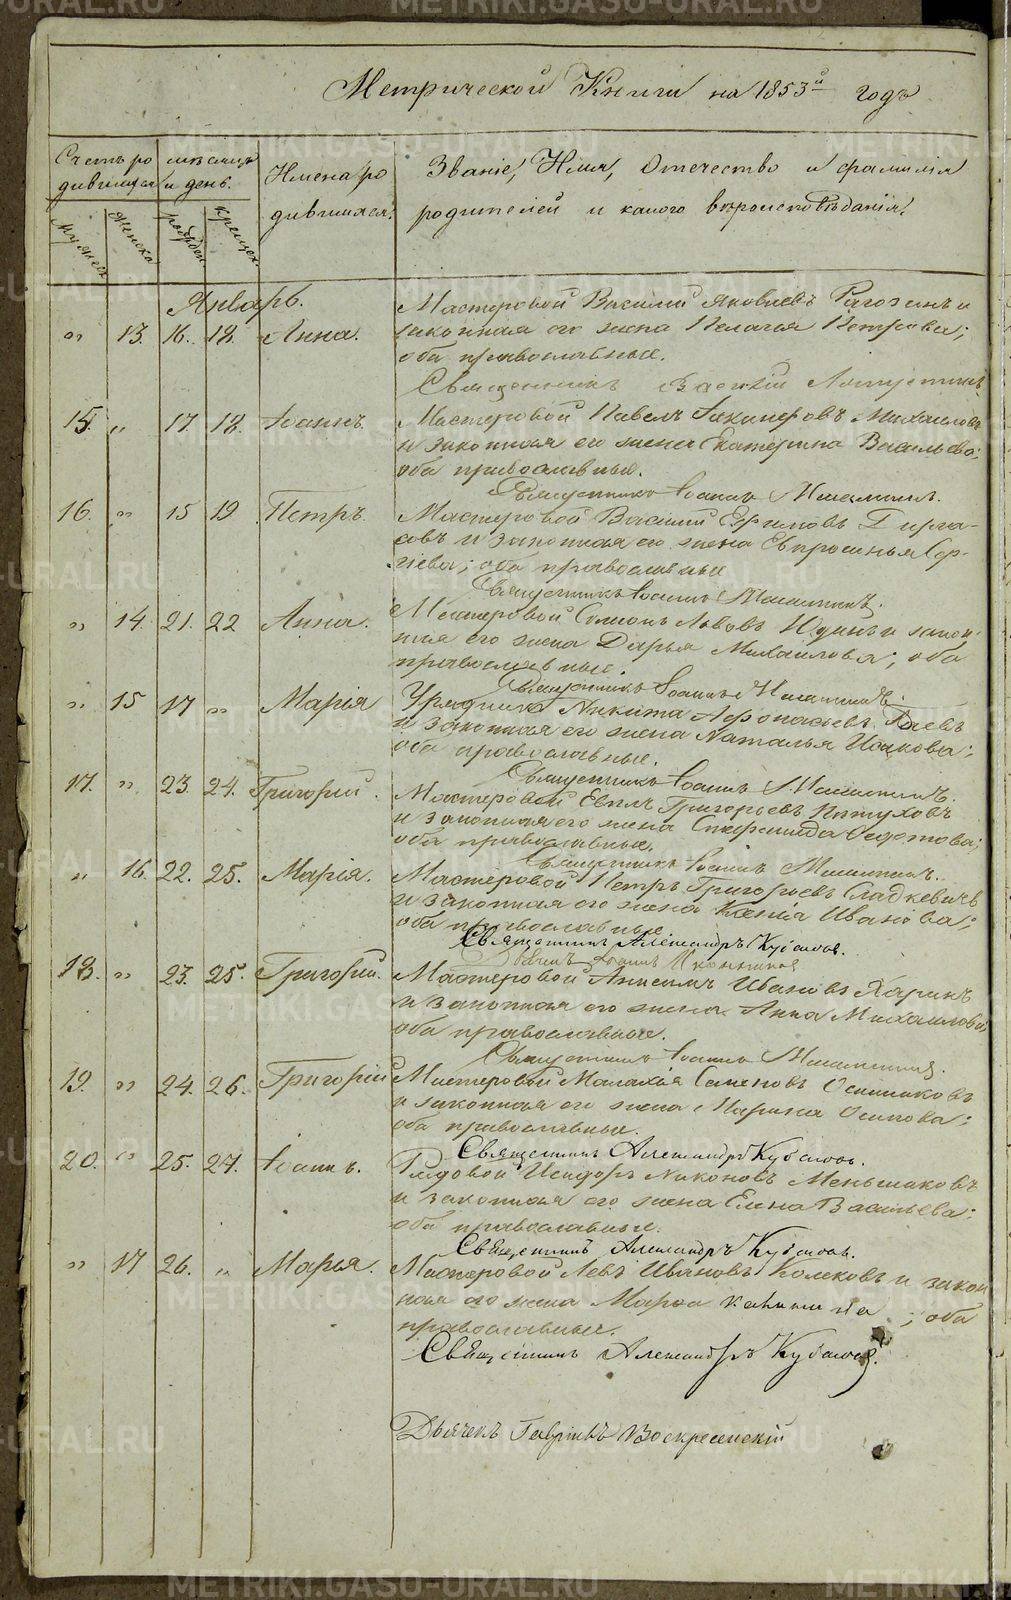 METRIKI.GASO-URAL.RU
Метрической Книги на 1853й годъ
Счетъ родившихся
мужеск.
женска
месяцъ и день.
рожден.
крещен.
Имена родившихся.
Званіе, Имя, Отечество и фамилія
родителей и какого вѣроисповѣданія.
Январь.
„ 13. 16. 18. Анна.
Мастеровой Василий Яковлевъ Рагозинъ и
законная его жена Пелагея Петрова;
оба православные.
Священникъ
15. „ 17 18. Іоаннъ.
Мастеровой Павелъ
и законная его жена Екатерина Васильева;
оба православные.
Священникъ Іоаннъ
16. „ 15 19 Петръ.
Мастеровой Василий Ефимовъ
и законная его жена Евпросинья Сер-
гіева; оба православные
Священникъ Іоаннъ
„ 14. 21. 22 Анна.
Мастеровой Симеонъ Львовъ Юдинъ и закон-
ная его жена Дарья Михайлова; оба
православные.
Священникъ Іоаннъ
„ 15 17 „ Марія
Урядникъ Никита Афонасьевъ
и законная его жена Наталья Исакова;
оба православные.
Священникъ Іоаннъ
17. „ 23. 24. Григорий.
Мастеровой Евплъ Григорьевъ Пятуховъ
и законная его жена
оба православные.
Священникъ Іоаннъ
„ 16. 22. 25. Марія.
Мастеровой Петръ Григорьевъ Сладкевичъ
и законная его жена Ксенія Иванова;
оба православные
Священникъ Александръ
18. „ 23. 25. Григорий.
Мастеровой Анисимъ Ивановъ Ларинъ
и законная его жена Анна Михайлова
оба православные.
Священникъ Іоаннъ
19. „ 24. 26. Григорій
Мастеровой Малахія Семеновъ
и законная его жена Марина Осипова;
оба православные.
Священникъ Александръ
20. „ 25. 27. Іоаннъ.
Рядовой Исидоръ Никоновъ Меньшиковъ
и законная его жена Елена Васильева;
оба православные.
Священникъ Александръ
„ 17 26. „ Марья.
Мастеровой Левъ Ивановъ Колековъ и закон
ная его жена Марфа ; оба
православные.
Священникъ Александръ
Дьячекъ Гавріилъ Воскресенскій